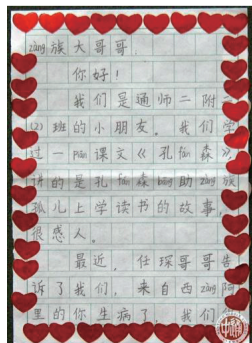 zàng族大哥哥
你好！
我们是通师二附
(2)班的小朋友。我们学
过一piān课文《孔fán森》，
讲的是孔fán森bāng助zàng族
孤儿上学读书的故事，
很感人。
最近，任琛哥哥告
诉了我们，来自西zàng阿
里的你生病了，我们